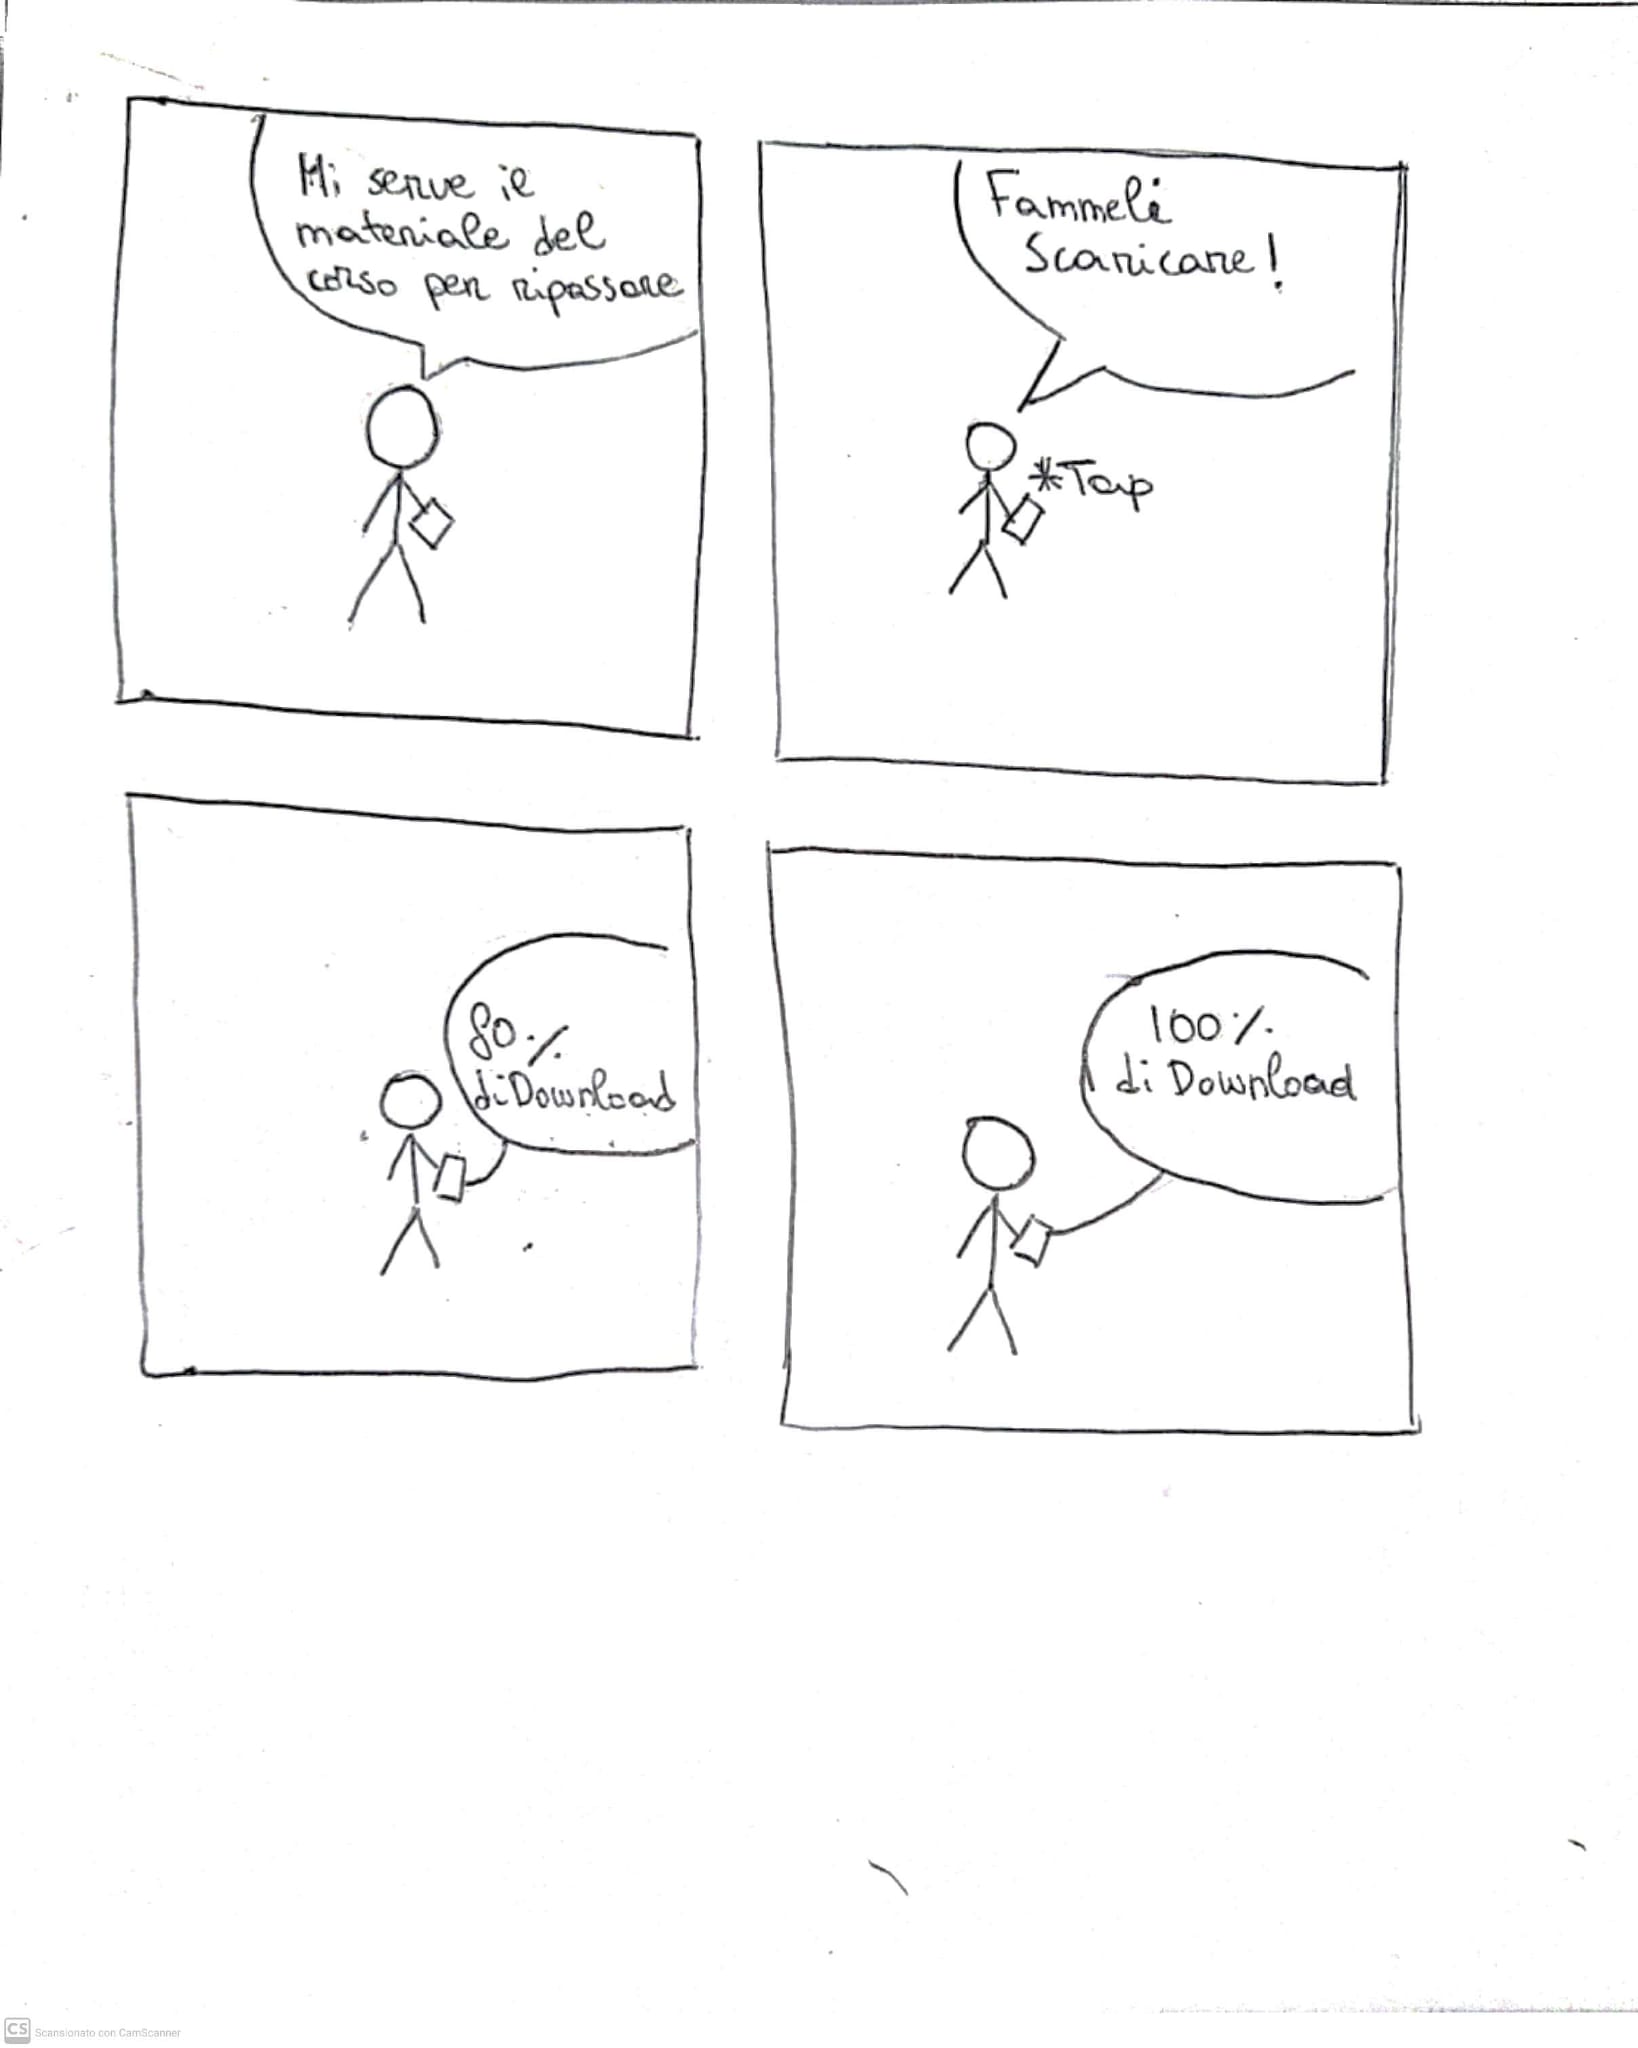 Mi serve il
materiale del
corso per ripassare
Fammeli
Scaricare!
*Tap
80%
di Download
100%
di Download
CS Scansionato con CamScanner